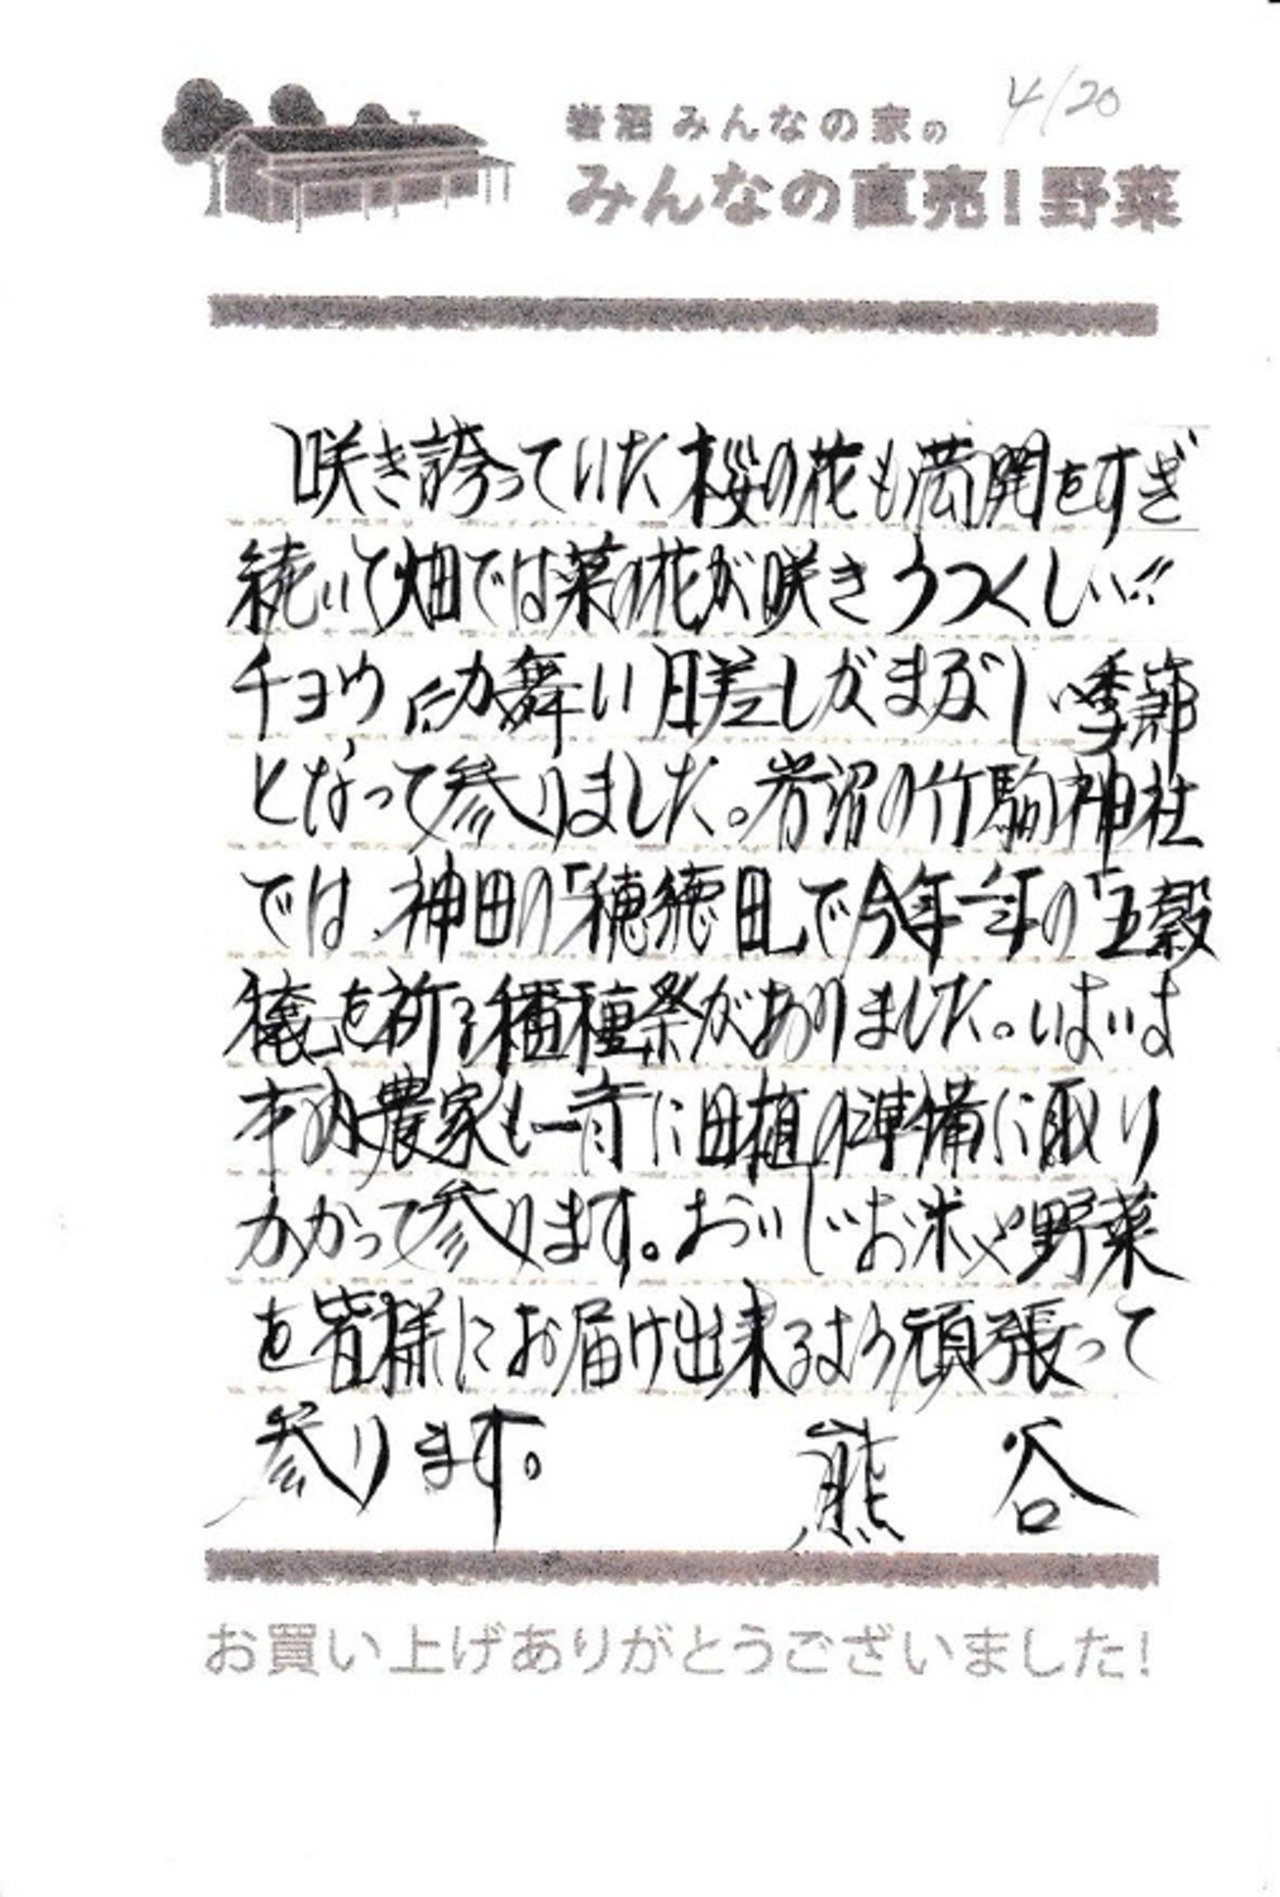 4/20
岩沼みんなの家の
みんなの直売!野菜
咲き誇っていた桜の花も満開をすぎ
続いて畑では菜の花が咲きうつくしい!!
チョウ 舞い日差しがまぶしい季節
となって参りました。岩沼の竹駒神社
では、神田の「穂徳田」で今年一年の「五穀
穣」を祈る播種祭がありました。いよいよ
市内農家も一斉に田植の準備に取り
かかって参ります。おいしいお米や野菜
を皆様にお届け出来るよう頑張って
参ります。 熊谷
お買い上げありがとうございました!